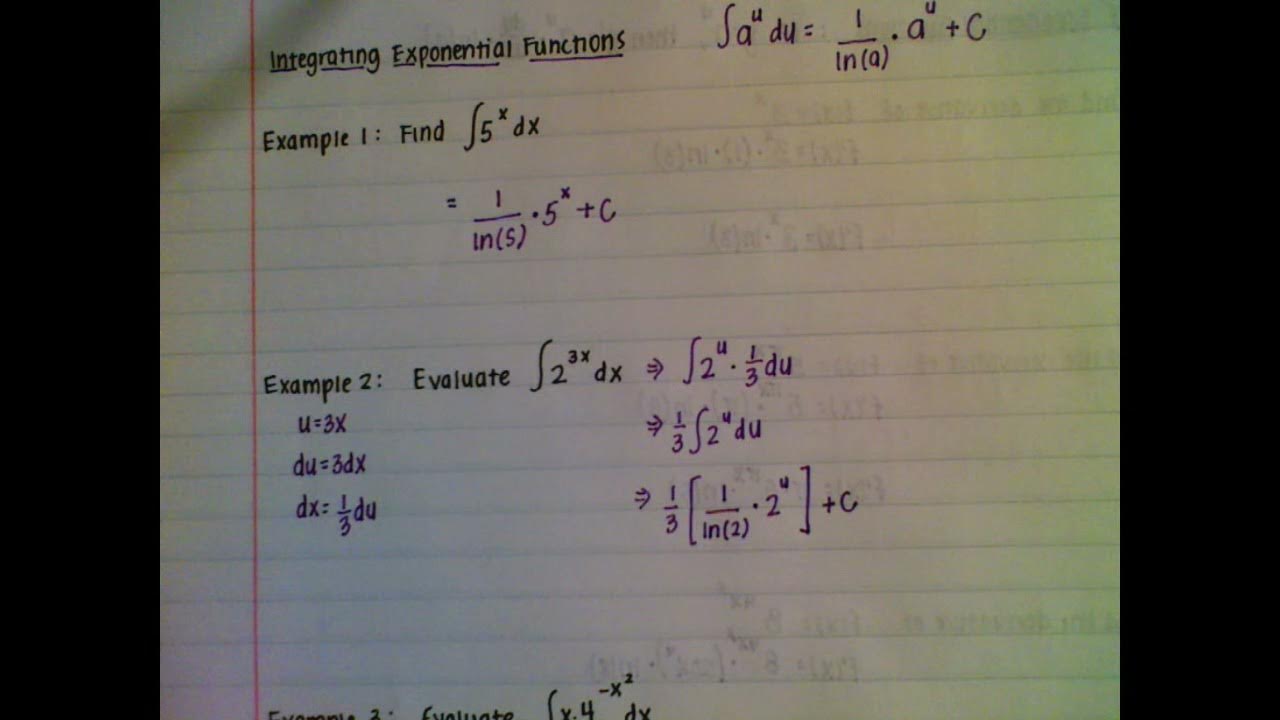 Integrating Exponential Functions ∫aᵘ du = 1/ln(a) · aᵘ + C
Example 1: Find ∫5ˣ dx
= 1/ln(5) · 5ˣ + C
Example 2: Evaluate ∫2³ˣ dx ⇒ ∫2ᵘ · 1/3 du
u=3x ⇒ 1/3 ∫2ᵘ du
du=3dx
dx=1/3 du ⇒ 1/3 [1/ln(2) · 2ᵘ] + C
Example 3: Evaluate ∫x·4^(-x²) dx